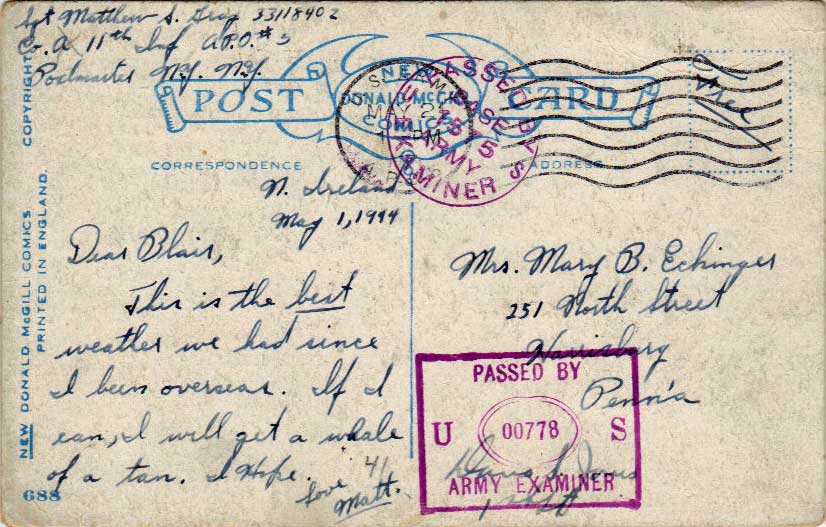 Sgt Matthew S. Gray 33118402
Co. A 11th Inf A.P.O. #5
Postmaster N.Y. N.Y.
POST CARD
NEW
DONALD McGILL
COMICS
PASSED BY
BASE
U.S. ARMY
EXAMINER
Free
CORRESPONDENCE
ADDRESS
N. Ireland
May 1, 1944
Dear Blair,
This is the best
weather we had since
I been overseas. If I
can, I will get a whale
of a tan. I Hope.
Love
Matt.
41
Mrs. Mary B. Echinger
251 North Street
Harrisburg
Penn'a
PASSED BY
U 00778 S
ARMY EXAMINER
COPYRIGHT
NEW DONALD McGILL COMICS
PRINTED IN ENGLAND.
688